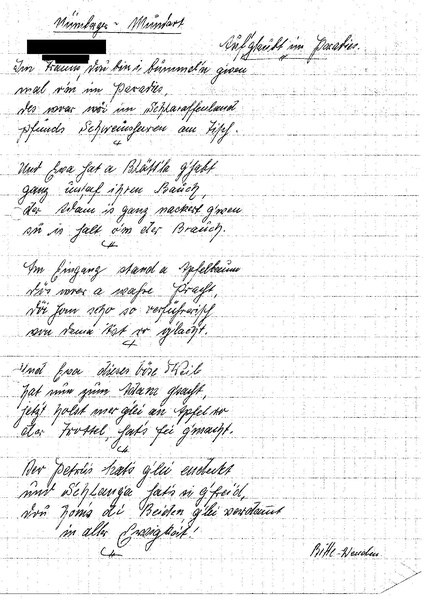 Nürnberger - Mundart
Aufg'klaubt im Paradies.
Im Traum, dou bin i bummel'n gwen
mal rin im Paradies,
des war wöi im Schlaraffenland
pfunds Schweinshaxen am Tisch.
Und Eva hat a Blättla g'habt
ganz unt'auf ihren Bauch,
der Adam is ganz nackert g'wen
su is halt om der Brauch.
Am Eingang stand a Apfelbaum
döi war a wahre Pracht,
döi hom scho so verführerisch
von dem g'lacht.
Und Eva dieses böse Weib
hat nun zum Adam gsacht,
jetzt holst mer glei an Apfel ro
der Trottel, hat's fei g'macht.
Der Petrus hat's glei entdeckt
und Schlanga hat's si g'freid,
dou hom's die Beiden glei verdammt
in aller Ewigkeit!
Bitte-Wenden